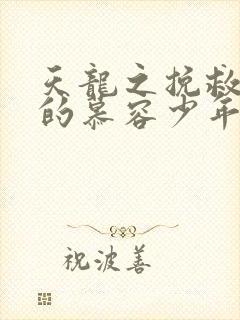 天龍之挽救
的慕容少年
祝波善